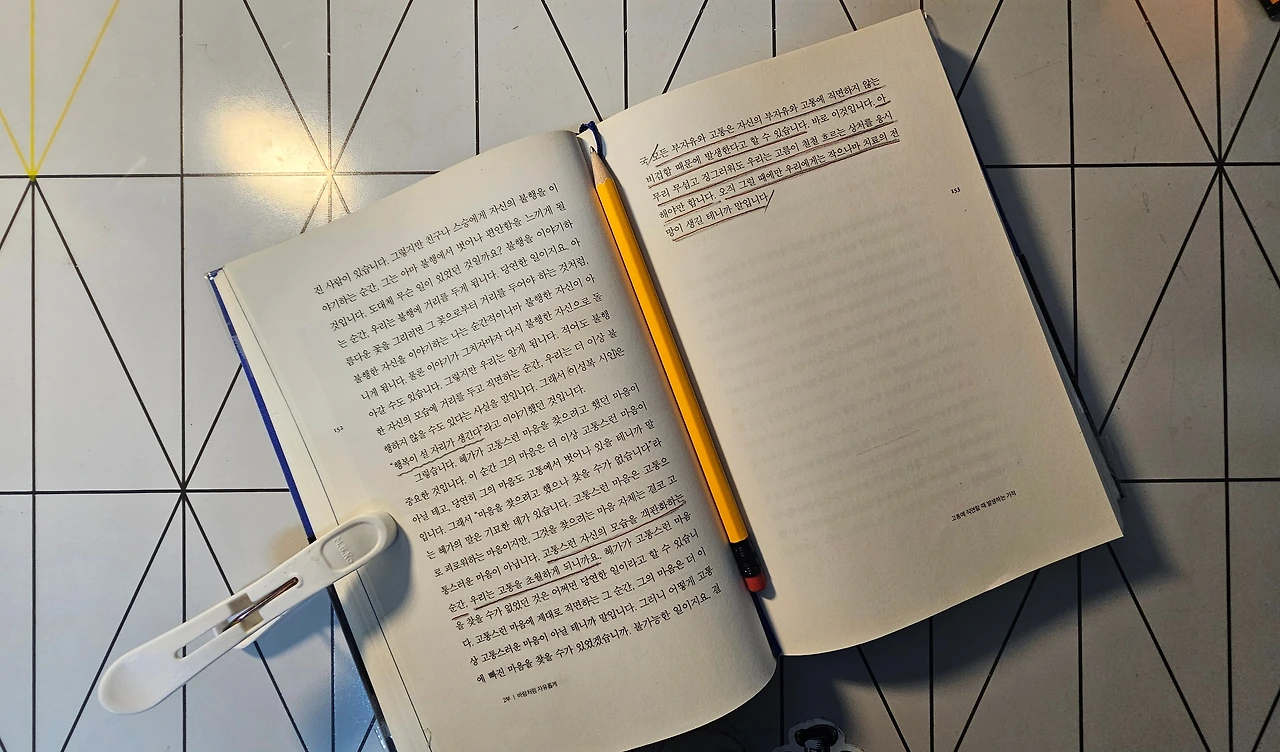 진 사람이 있습니다. 그렇지만 친구나 스승에게 자신의 불행을 이
야기하는 순간, 그는 아마 불행에서 벗어나 편안함을 느끼게 될
것입니다. 도대체 무슨 일이 있었던 것일까요? 불행을 이야기하
는 순간, 우리는 불행에 거리를 두게 됩니다. 당연한 일이지요. 아
름다운 꽃을 그리려면 그 꽃으로부터 거리를 두어야 하는 것처럼,
불행한 자신을 이야기하는 나는 순간적이나마 불행한 자신이 아
니게 됩니다. 물론 이야기가 그치자마자 다시 불행한 자신으로 돌
아갈 수도 있습니다. 그렇지만 우리는 알게 됩니다. 적어도 불행
한 자신의 모습에 거리를 두고 직면하는 순간, 우리는 더 이상 불
행하지 않을 수도 있다는 사실을 말입니다. 그래서 이성복 시인은
"행복이 설 자리가 생긴다"라고 이야기했던 것입니다.
그렇습니다. 혜가가 고통스런 마음을 찾으려고 했던 마음이
중요한 것입니다. 이 순간 그의 마음은 더 이상 고통스런 마음이
아닐 테고, 당연히 그의 마음도 고통에서 벗어나 있을 테니까 말
입니다. 그래서 "마음을 찾으려고 했으나 찾을 수가 없습니다"라
는 혜가의 말은 기묘한 데가 있습니다. 고통스런 마음은 고통으
로 괴로워하는 마음이지만, 그것을 찾으려는 마음 자체는 결코 고
통스러운 마음이 아닙니다. 고통스런 자신의 모습을 객관화하는
순간, 우리는 고통을 초월하게 되니까요. 혜가가 고통스런 마음
을 찾을 수가 없었던 것은 어쩌면 당연한 일이라고 할 수 있습니
다. 고통스런 마음에 제대로 직면하는 그 순간, 그의 마음은 더 이
상 고통스러운 마음이 아닐 테니까 말입니다. 그러니 어떻게 고통
에 빠진 마음을 찾을 수가 있었겠습니까. 불가능한 일이지요. 결
152
2부 | 바람처럼 자유롭게
국 모든 부자유와 고통은 자신의 부자유와 고통에 직면하지 않는
비겁함 때문에 발생한다고 할 수 있습니다. 바로 이것입니다. 아
무리 무섭고 징그러워도 우리는 고름이 철철 흐르는 상처를 응시
해야만 합니다. 오직 그럴 때에만 우리에게는 작으나마 치료의 전
망이 생길 테니까 말입니다.
153
고통에 직면할 때 발생하는 기적